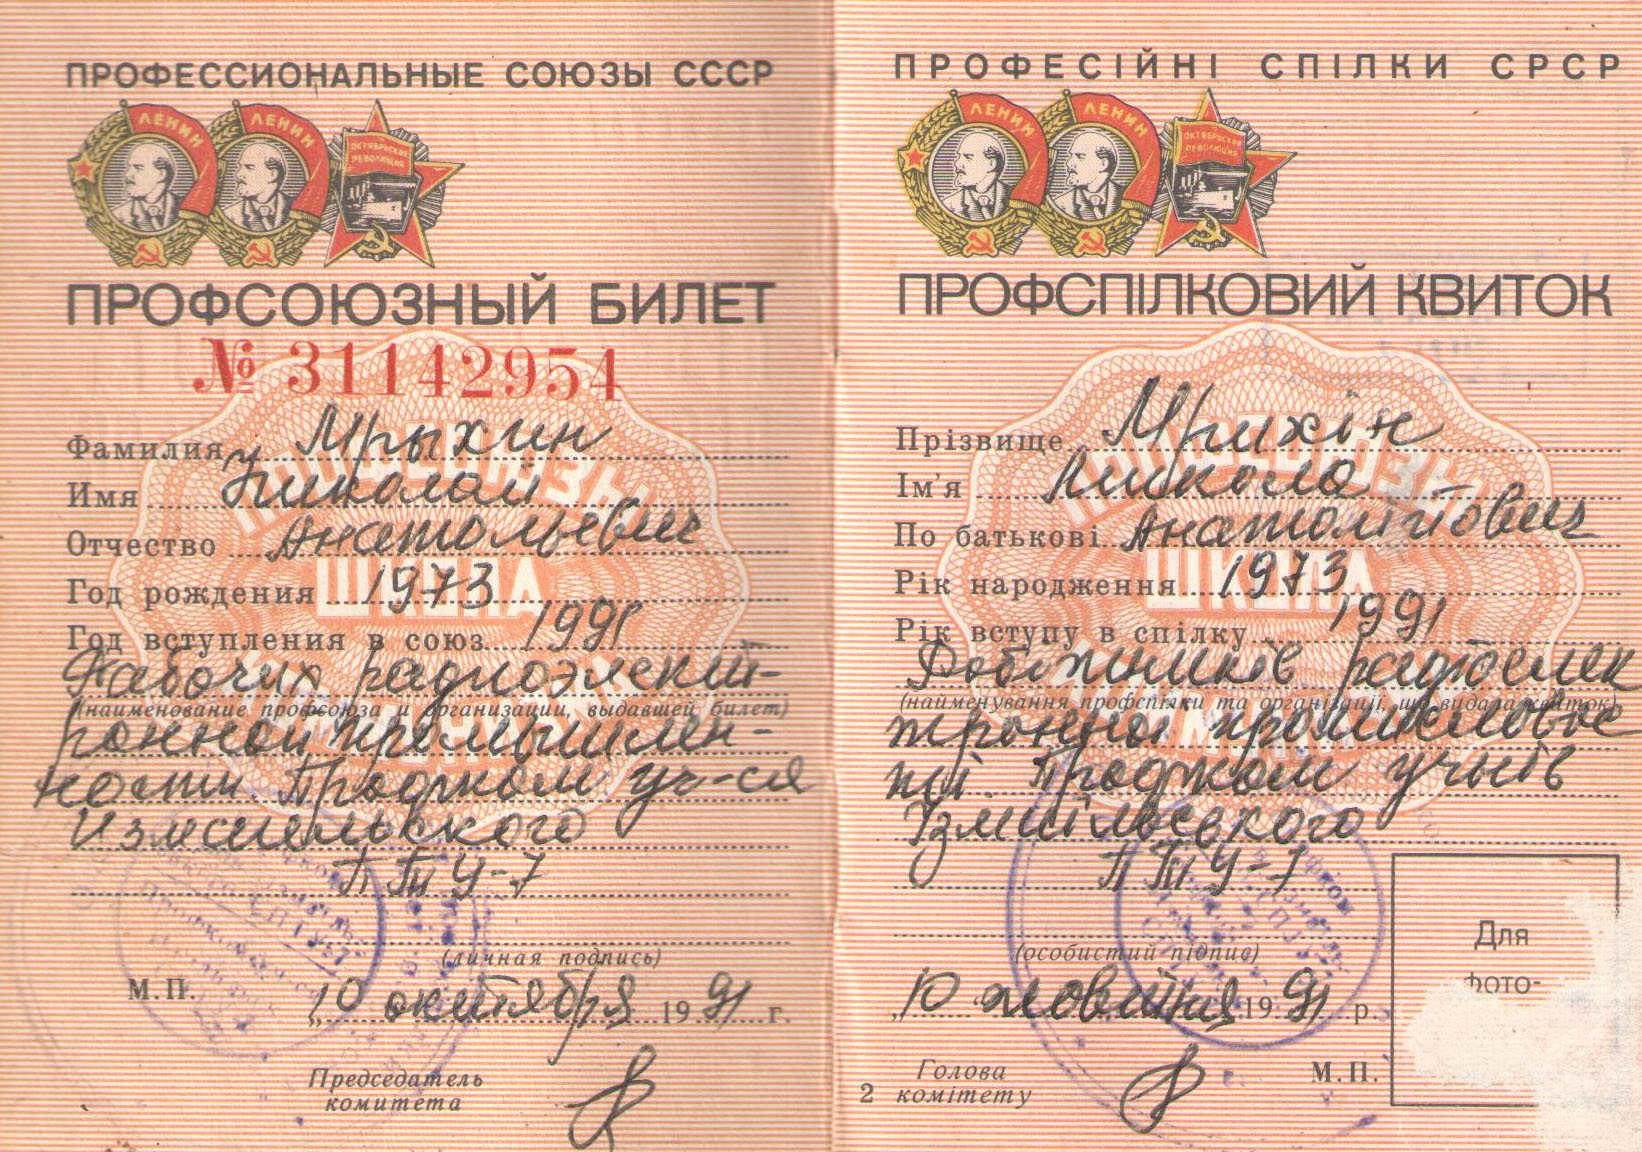 ПРОФЕССИОНАЛЬНЫЕ СОЮЗЫ СССР
ЛЕНИН
ЛЕНИН
ОКТЯБРЬСКАЯ
РЕВОЛЮЦИЯ
ПРОФСОЮЗНЫЙ БИЛЕТ
№ 31142954
Фамилия Мрыхин
Имя Николай
Отчество Анатольевич
Год рождения 1973
Год вступления в союз 1991
Рабочих радиоэлект-
(наименование профсоюза и организации, выдавшей билет)
ронной промышлен-
ности Профком уч-ся
Измаильского
ПТУ-7
(личная подпись)
М.П.
„10 октября 1991 г.
Председатель
комитета
ПРОФЕСІЙНІ СПІЛКИ СРСР
ЛЕНИН
ЛЕНИН
ОКТЯБРЬСКАЯ
РЕВОЛЮЦИЯ
ПРОФСПІЛКОВИЙ КВИТОК
Прізвище Мрихін
Ім'я Микола
По батькові Анатолійович
Рік народження 1973
Рік вступу в спілку 1991
Робітників радіоелек
(найменування профспілки та організації, що видала квиток)
тронної промислово
Профком учнів
Ізмаїльського
ПТУ-7
(особистий підпис)
„10" жовтня 1991 р.
Для
фото-
Голова
комітету
М.П.
2